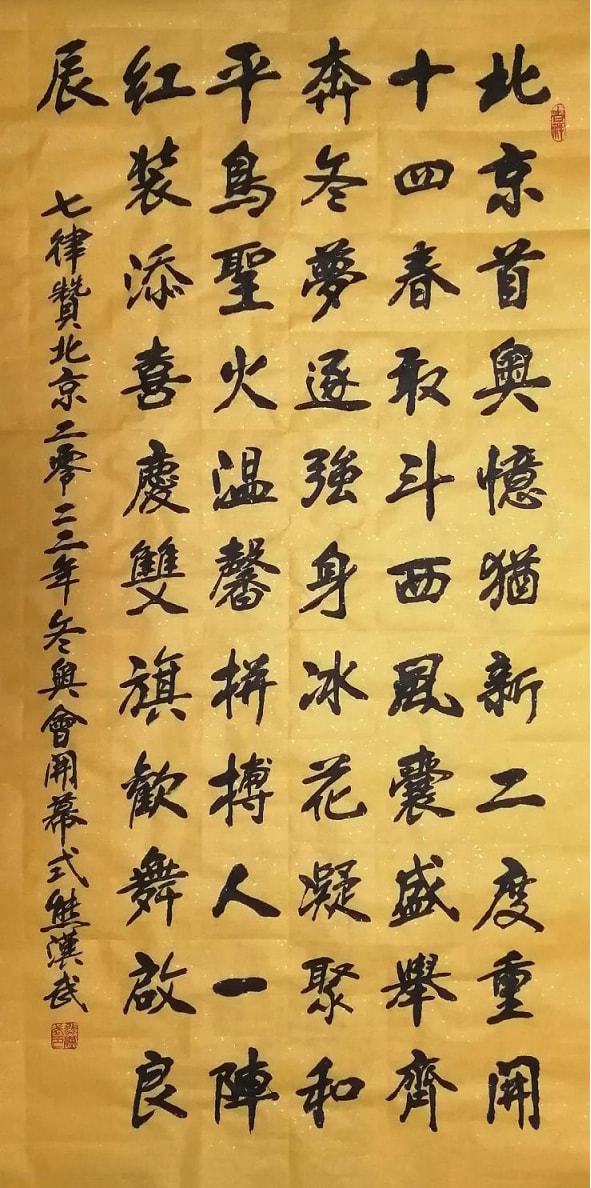 北京首奧憶猶新二度重開
十四春敢斗西風囊盛舉齊
奔冬夢逐強身冰花凝聚和
平鳥聖火温馨拼搏人一陣
红裝添喜慶雙旗歡舞啟良
辰
七律贊北京二零二二年冬奧會開幕式熊漢武